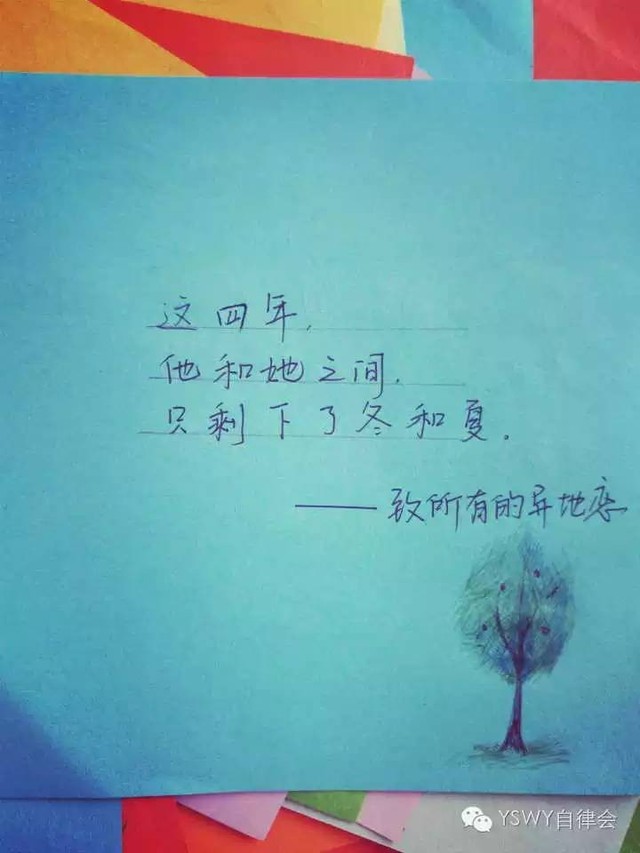 这四年,
他和她之间,
只剩下了冬和夏。
——致所有的异地恋
YSWY自律会